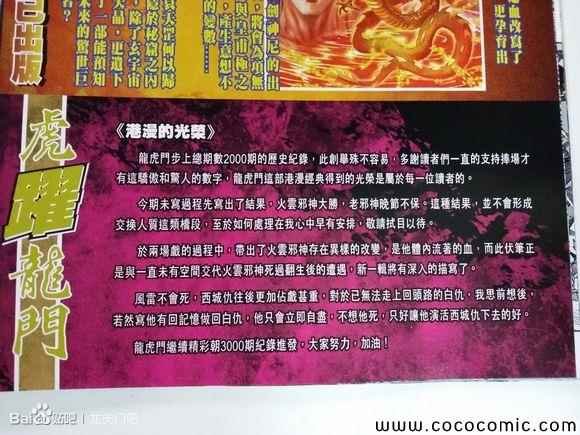 血改寫了
更孕育出
創神尼的出
，將會為可無
與皇甫極之
，產生意想不
的變數……
良天罡何以歸
隱於秘窟之內
，除了玄宇宙
大品，更遺下
了一部能預知
未來的驚世巨
者？
已出版
虎躍龍門
《港漫的光榮》
龍虎門步上總期數2000期的歷史紀錄，此創舉殊不容易，多謝讀者們一直的支持捧場才
有這驕傲和驚人的數字，龍虎門這部港漫經典得到的光榮是屬於每一位讀者的。
今期未寫過程先寫出了結果，火雲邪神大勝，老邪神晚節不保。這種結果，並不會形成
交換人質這類橋段，至於如何處理在我心中早有安排，敬請拭目以待。
於兩場戲的過程中，帶出了火雲邪神存在異樣的改變，是他體內流著的血，而此伏筆正
是與一直未有空間交代火雲邪神死過翻生後的遭遇，新一輯將有深入的描寫了。
風雷不會死，西城仇往後更加佔戲甚重，對於已無法走上回頭路的白仇，我思前想後，
若然寫他有回記憶做回白仇，他只會立即自盡，不想他死，只好讓他演活西城仇下去的好。
龍虎門繼續精彩朝3000期紀錄進發，大家努力，加油！
Bai 贴吧 | 龙虎门吧
www.cococomic.com